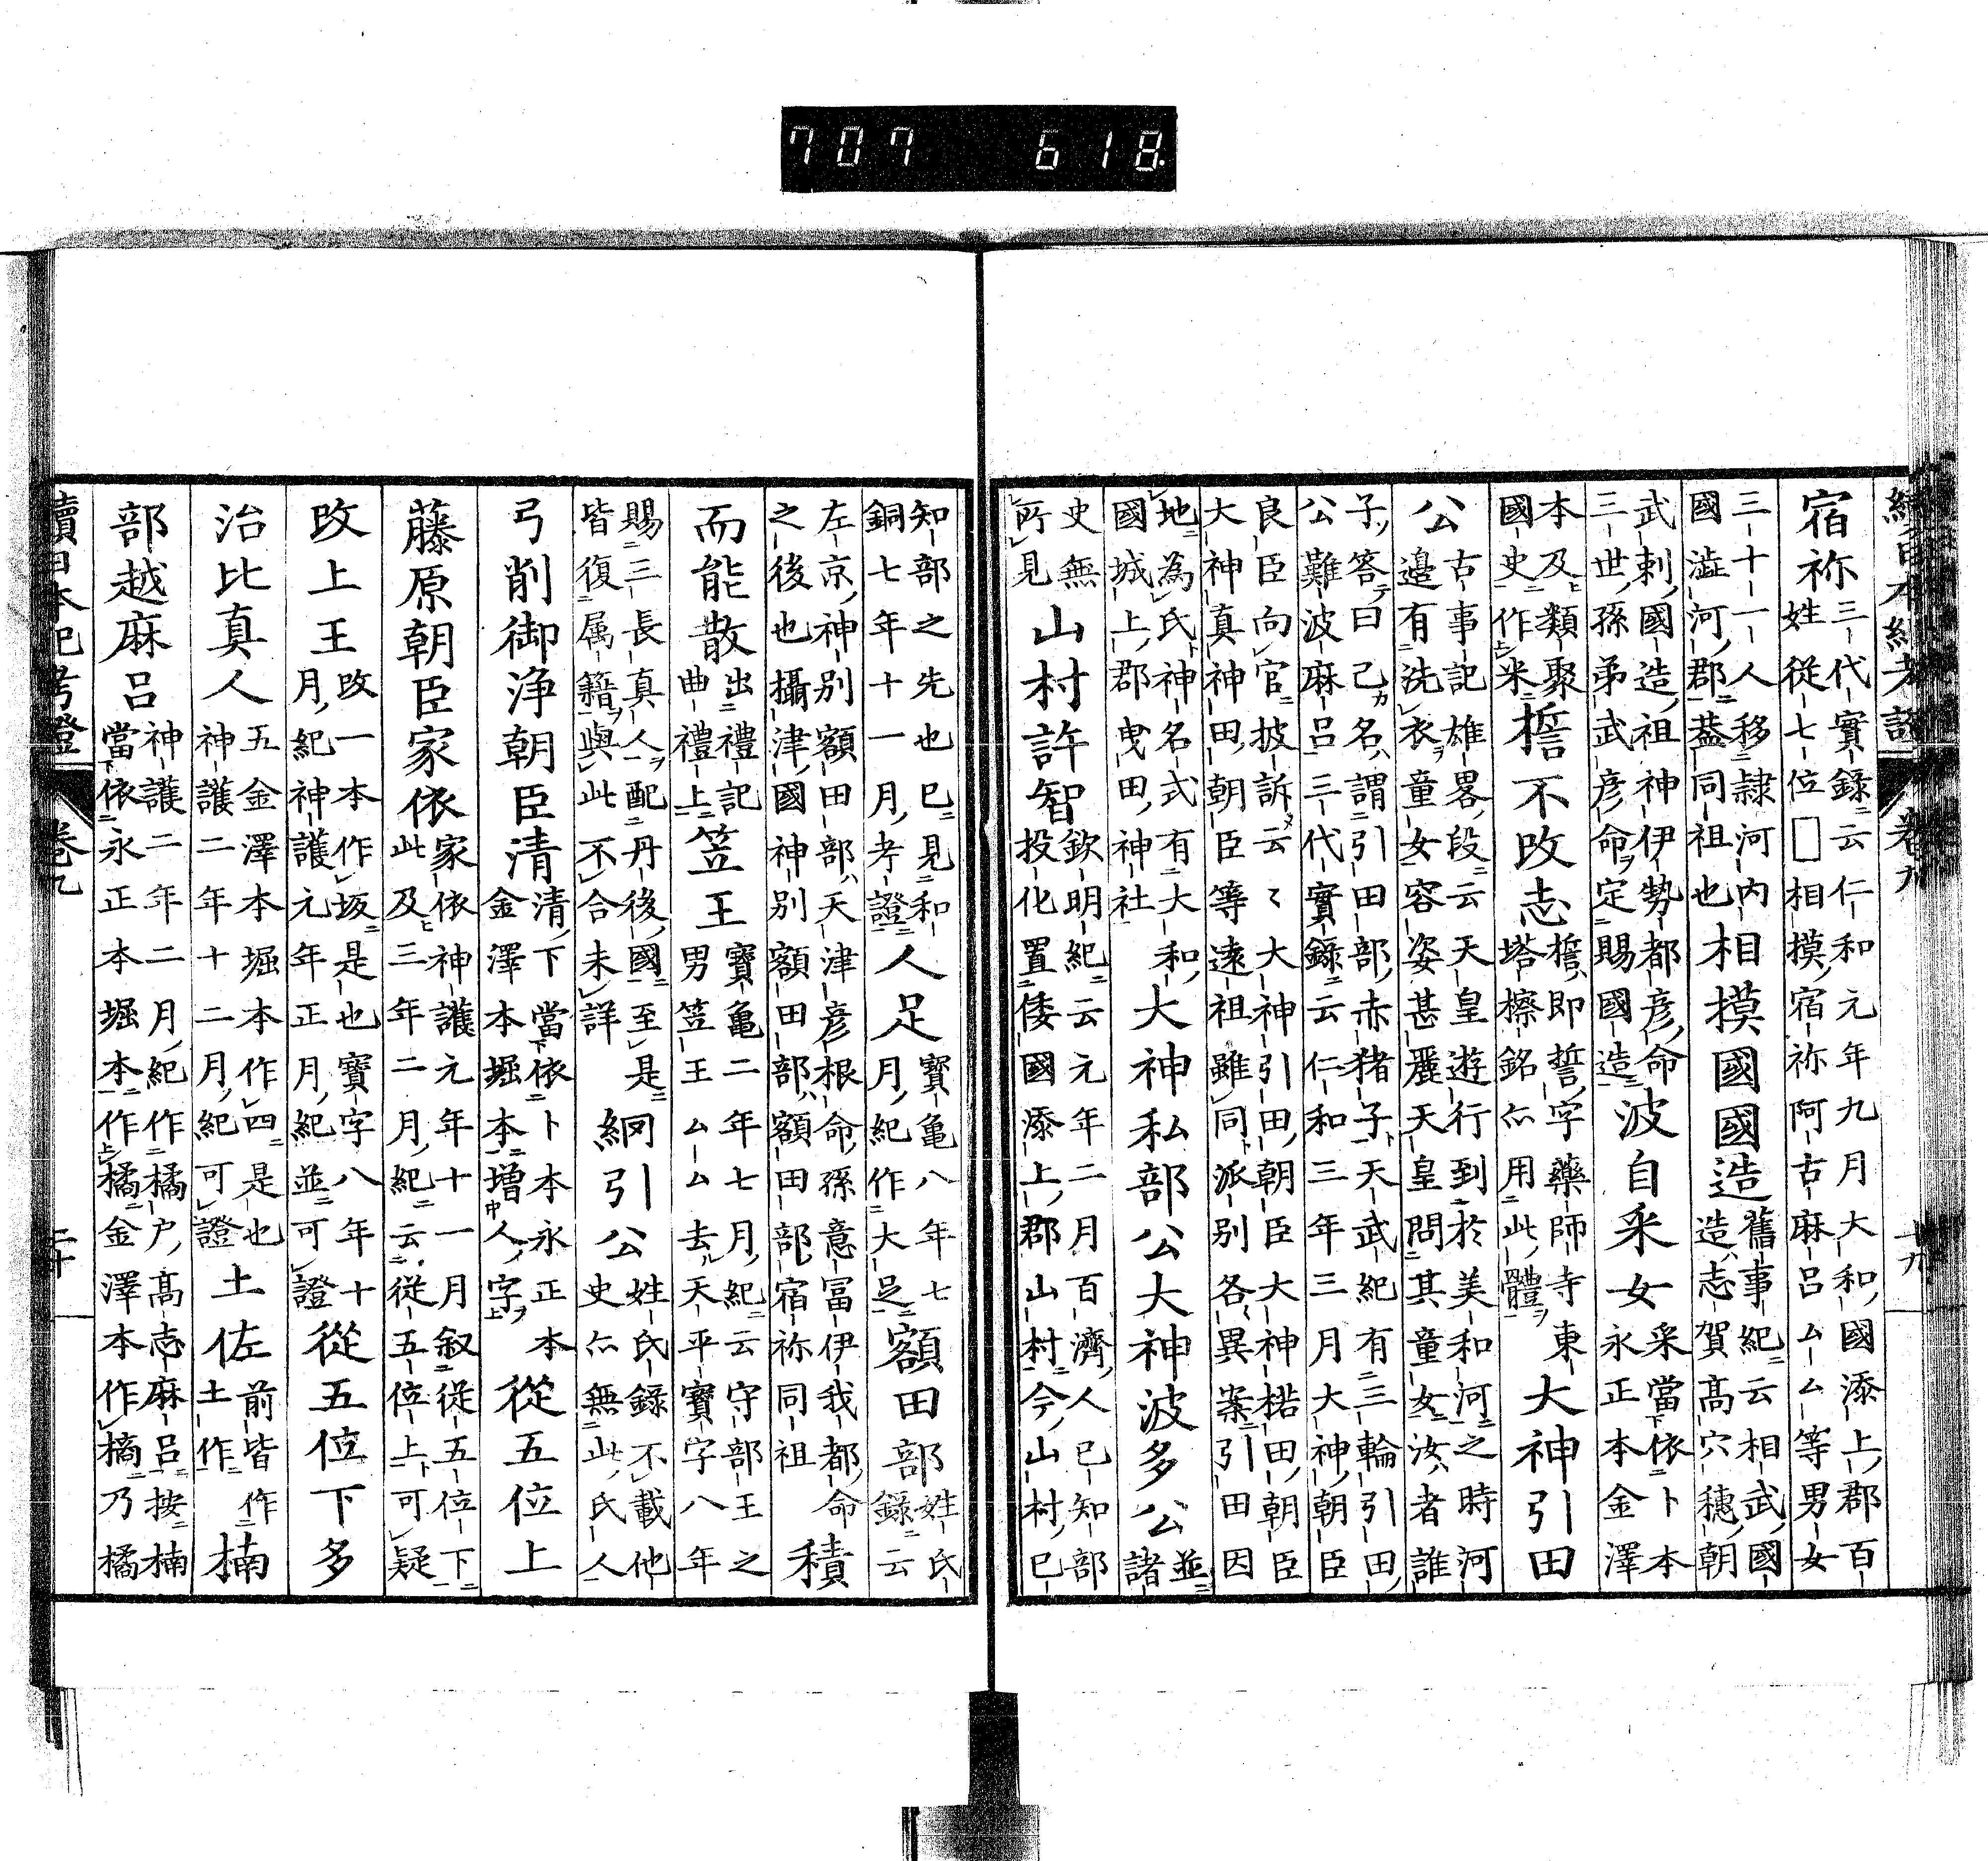 續日本紀考證 卷九 十九
宿祢 三代實錄云仁和元年九月大和國添上郡百 姓從七位□相摸宿祢阿古麻呂ムム等男女
三十一人移隷河内 國澁河郡蓋同祖也 相摸國國造 舊事紀云相武國 造志賀高穴穗朝
武刺國造祖神伊勢都彦命 三世孫弟武彦命定賜國造 波自采女 采當依卜本 永正本金澤
本及類聚 國史作米 不改志 即誓字藥師寺東 塔檫銘亦用此體 大神引田
公 古事記雄畧段云天皇遊行到於美和河之時河 邊有洗衣童女容姿甚麗天皇問其童女汝者誰
子答曰己名謂引田部赤猪子天武紀有三輪引田 公難波麻呂三代實錄云仁和三年三月大神朝臣
良臣向官披訴云々大神引田朝臣大神楉田朝臣 大神真神田朝臣等遠祖雖同派別各異案引田因
地為氏神名式有大和 國城上郡曳田神社 大神私部公大神波多公 並 諸
史無 所見 山村許智 欽明紀云元年二月百濟人已知部 投化置倭國添上郡山村今山村已
知部之先也已見和 銅七年十一月考證 人足 寳龜八年七 月紀作大足 額田部 姓氏 錄云
左京神別額田部天津彦根命孫意冨伊我都命 之後也攝津國神別額田部額田部宿祢同祖 積
而能散 出禮記 曲禮上 笠王 寳龜二年七月紀云守部王之 男笠王ムム去天平寳字八年
賜三長真人配丹後國至是 皆復属籍與此不合未詳 絅引公 姓氏錄不載他 史亦無此氏人
弓削御浄朝臣清 清下當依卜本永正本 金澤本堀本増人字 從五位上
藤原朝臣家依 家依神護元年十一月叙從五位下 此及三年二月紀云從五位上可疑
改上王 改一本作坂是也寳字八年十 月紀神護元年正月紀並可證 從五位下多
治比真人 五金澤本堀本作四是也 神護二年十二月紀可證 土佐 前皆作 土作 楠
部越麻呂 神護二年二月紀作橘戸高志麻呂按楠 當依永正本堀本作橘金澤本作樀乃橘
續日本紀考證 卷九 二十